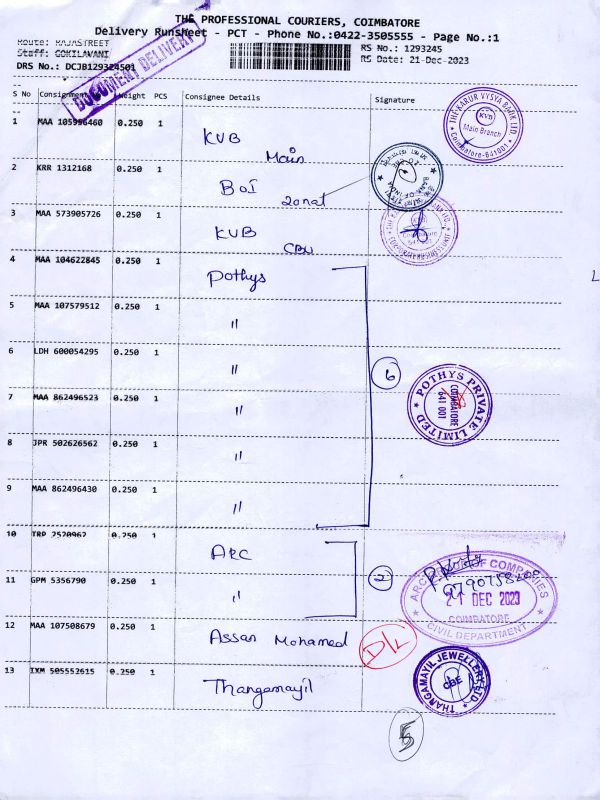 THE PROFESSIONAL COURIERS, COIMBATORE
Delivery Runsheet - PCT - Phone No.:0422-3505555 - Page No.:1
Route: RAJASTREET
RS No.: 1293245
Staff: GOKILAVANI
RS Date: 21-Dec-2023
DRS No.: DCJB129324501
DOCUMENT DELIVERY
S No Consignment Weight PCS Consignee Details Signature
1 MAA 105996460 0.250 1 KVB Main
THE KARUR VYSYA BANK LTD
KVB
Main Branch
Coimbatore-641001
2 KRR 1312168 0.250 1 BOI zonal
BANK OF INDIA
3 MAA 573905726 0.250 1 KVB CBU
KVB
4 MAA 104622845 0.250 1 Pothys
5 MAA 107579512 0.250 1 "
6 LDH 600054295 0.250 1 "
6
7 MAA 862496523 0.250 1 "
POTHYS PRIVATE LIMITED
COIMBATORE
641 001
8 JPR 502626562 0.250 1 "
9 MAA 862496430 0.250 1 "
10 TRP 2520962 0.250 1 ARC
11 GPM 5356790 0.250 1 "
2
OF COMPANIES
21 DEC 2023
COIMBATORE
CIVIL DEPARTMENT
12 MAA 107508679 0.250 1 Assan Mohamed D/L
13 IXM 505552615 0.250 1 Thangamayil
THANGAMAYIL JEWELLERY LTD
CBE